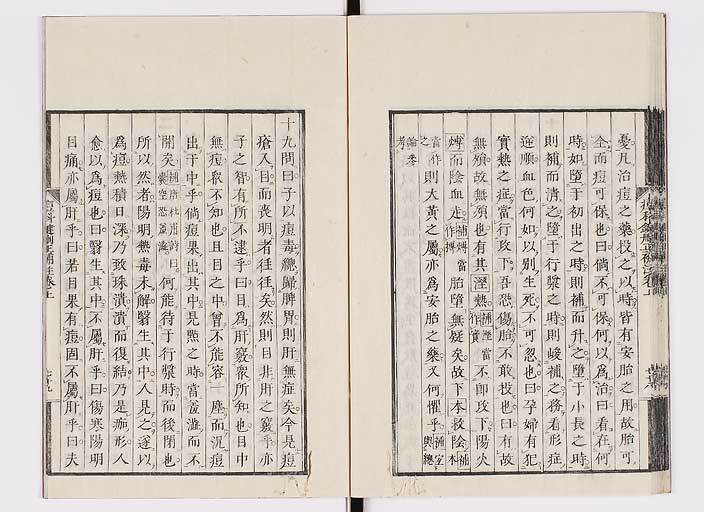 憂凡治痘之藥投之以時皆有安胎之用故胎可
全而痘可保也曰倘不可保何以爲治曰看在何
時如墮于初出之時則補而升之墮于小長之時
則補而清之墮于行漿之時則峻補之務看形症
逆順血色何如以別生死不可忽也曰孕婦有犯
實熱之症當行攻下吾恐傷胎不敢投也曰有故
無殞故無殞也有其溼熱補溼當作不卽攻下陽火
熾而陰血走補熾當作搏胎墮無疑矣故下本救陰補
當作之則大黃之屬亦爲安胎之藥又何懼乎補室本輿總
論參考
十九問曰子以痘毒總歸脾胃則肝無症矣今見痘
瘡入目而喪明者往往矣然則目非肝之竅乎亦
子之智有所不逮乎曰目爲肝竅衆所知也目中
無痘衆不知也且目之中曾不能容一塵而況痘
出于中乎倘痘果出其中見㷔之時當羞澁而不
開矣補唐杜甫詩曰囊空恐羞澁何能待于行漿時而後閉也
所以然者陽明熱毒未解翳生其中人見之遂以
爲痘㷔積日深乃致珠潰潰而復結乃是痂形人
愈以爲痘也曰翳生其中不屬肝乎曰傷寒陽明
目痛亦屬肝乎曰若目果有痘固不屬肝乎曰夫